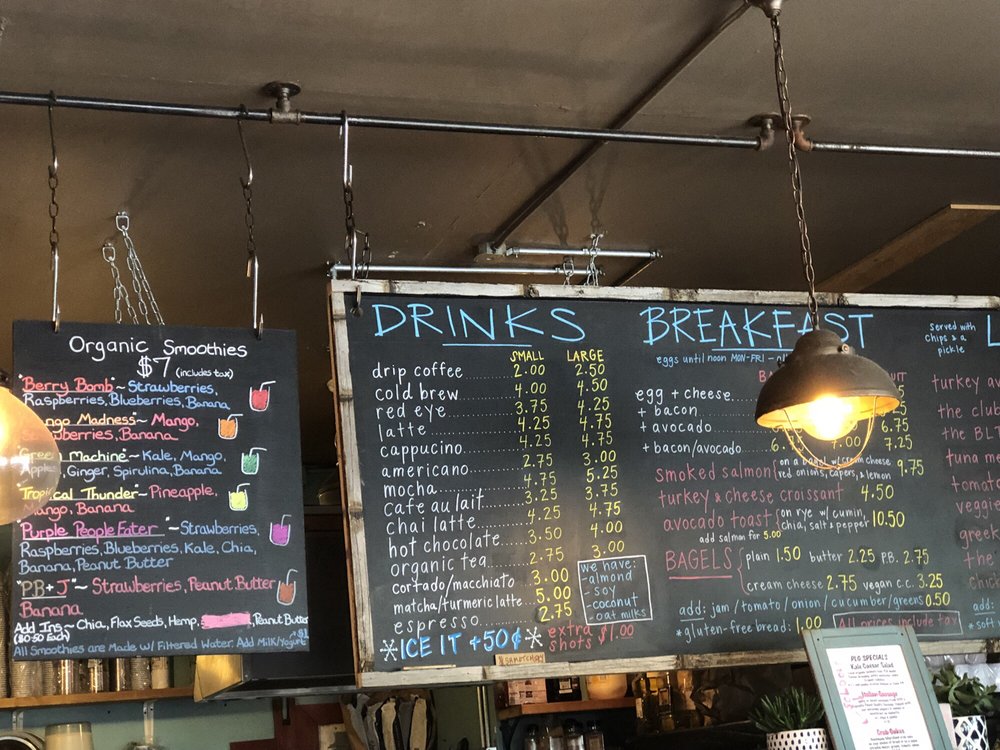 Organic Smoothies
$7 (includes tax)
"Berry Bomb"~ Strawberries,
Raspberries, Blueberries, Banana
Madness"~ Mango,
Strawberries, Banana
Green Machine"~ Kale, Mango,
Apples, Ginger, Spirulina, Banana
"Tropical Thunder"~ Pineapple,
Mango, Banana
"Purple People Eater"~ Strawberries,
Raspberries, Blueberries, Kale, Chia,
Banana, Peanut Butter
"PB + J"~ Strawberries, Peanut Butter
Banana
Add Ins~ Chia, Flax Seeds, Hemp, Peanut Butter
($0.50 Each)
All Smoothies are Made w/ Filtered Water. Add Milk/Yogurt $1
DRINKS
SMALL LARGE
drip coffee 2.00 2.50
cold brew 4.00 4.50
red eye 3.75 4.25
latte 4.25 4.75
cappucino 4.25 4.75
americano 2.75 3.00
mocha 4.75 5.25
cafe au lait 3.25 3.75
chai latte 4.25 4.75
hot chocolate 3.50 4.00
organic tea 2.75 3.00
cortado/macchiato 3.00
matcha/turmeric latte 5.00
espresso 2.75
we have:
-almond
-soy
-coconut
-oat milks
*ICE IT +50¢*
extra
shots $1.00
BREAKFAST
eggs until noon MON-FRI -
egg + cheese
+ bacon
+ avocado 6.75
+ bacon/avocado 7.00 7.25
smoked salmon on a bagel w/ cream cheese, 9.75
red onions, capers, & lemon
turkey & cheese croissant 4.50
avocado toast on rye w/ cumin, 10.50
chia, salt & pepper
add salmon for 5.00
BAGELS plain 1.50 butter 2.25 P.B. 2.75
cream cheese 2.75 vegan c.c. 3.25
add: jam / tomato / onion / cucumber / greens 0.50
*gluten-free bread: 1.00
All prices include tax
served with
chips & a
pickle
L
turkey av
the club
the BLT
tuna me
tomato
veggi
greek
the
the
add:
*soft
PLG SPECIALS
Kale Caesar Salad
Italian Sausage
Crab Cakes